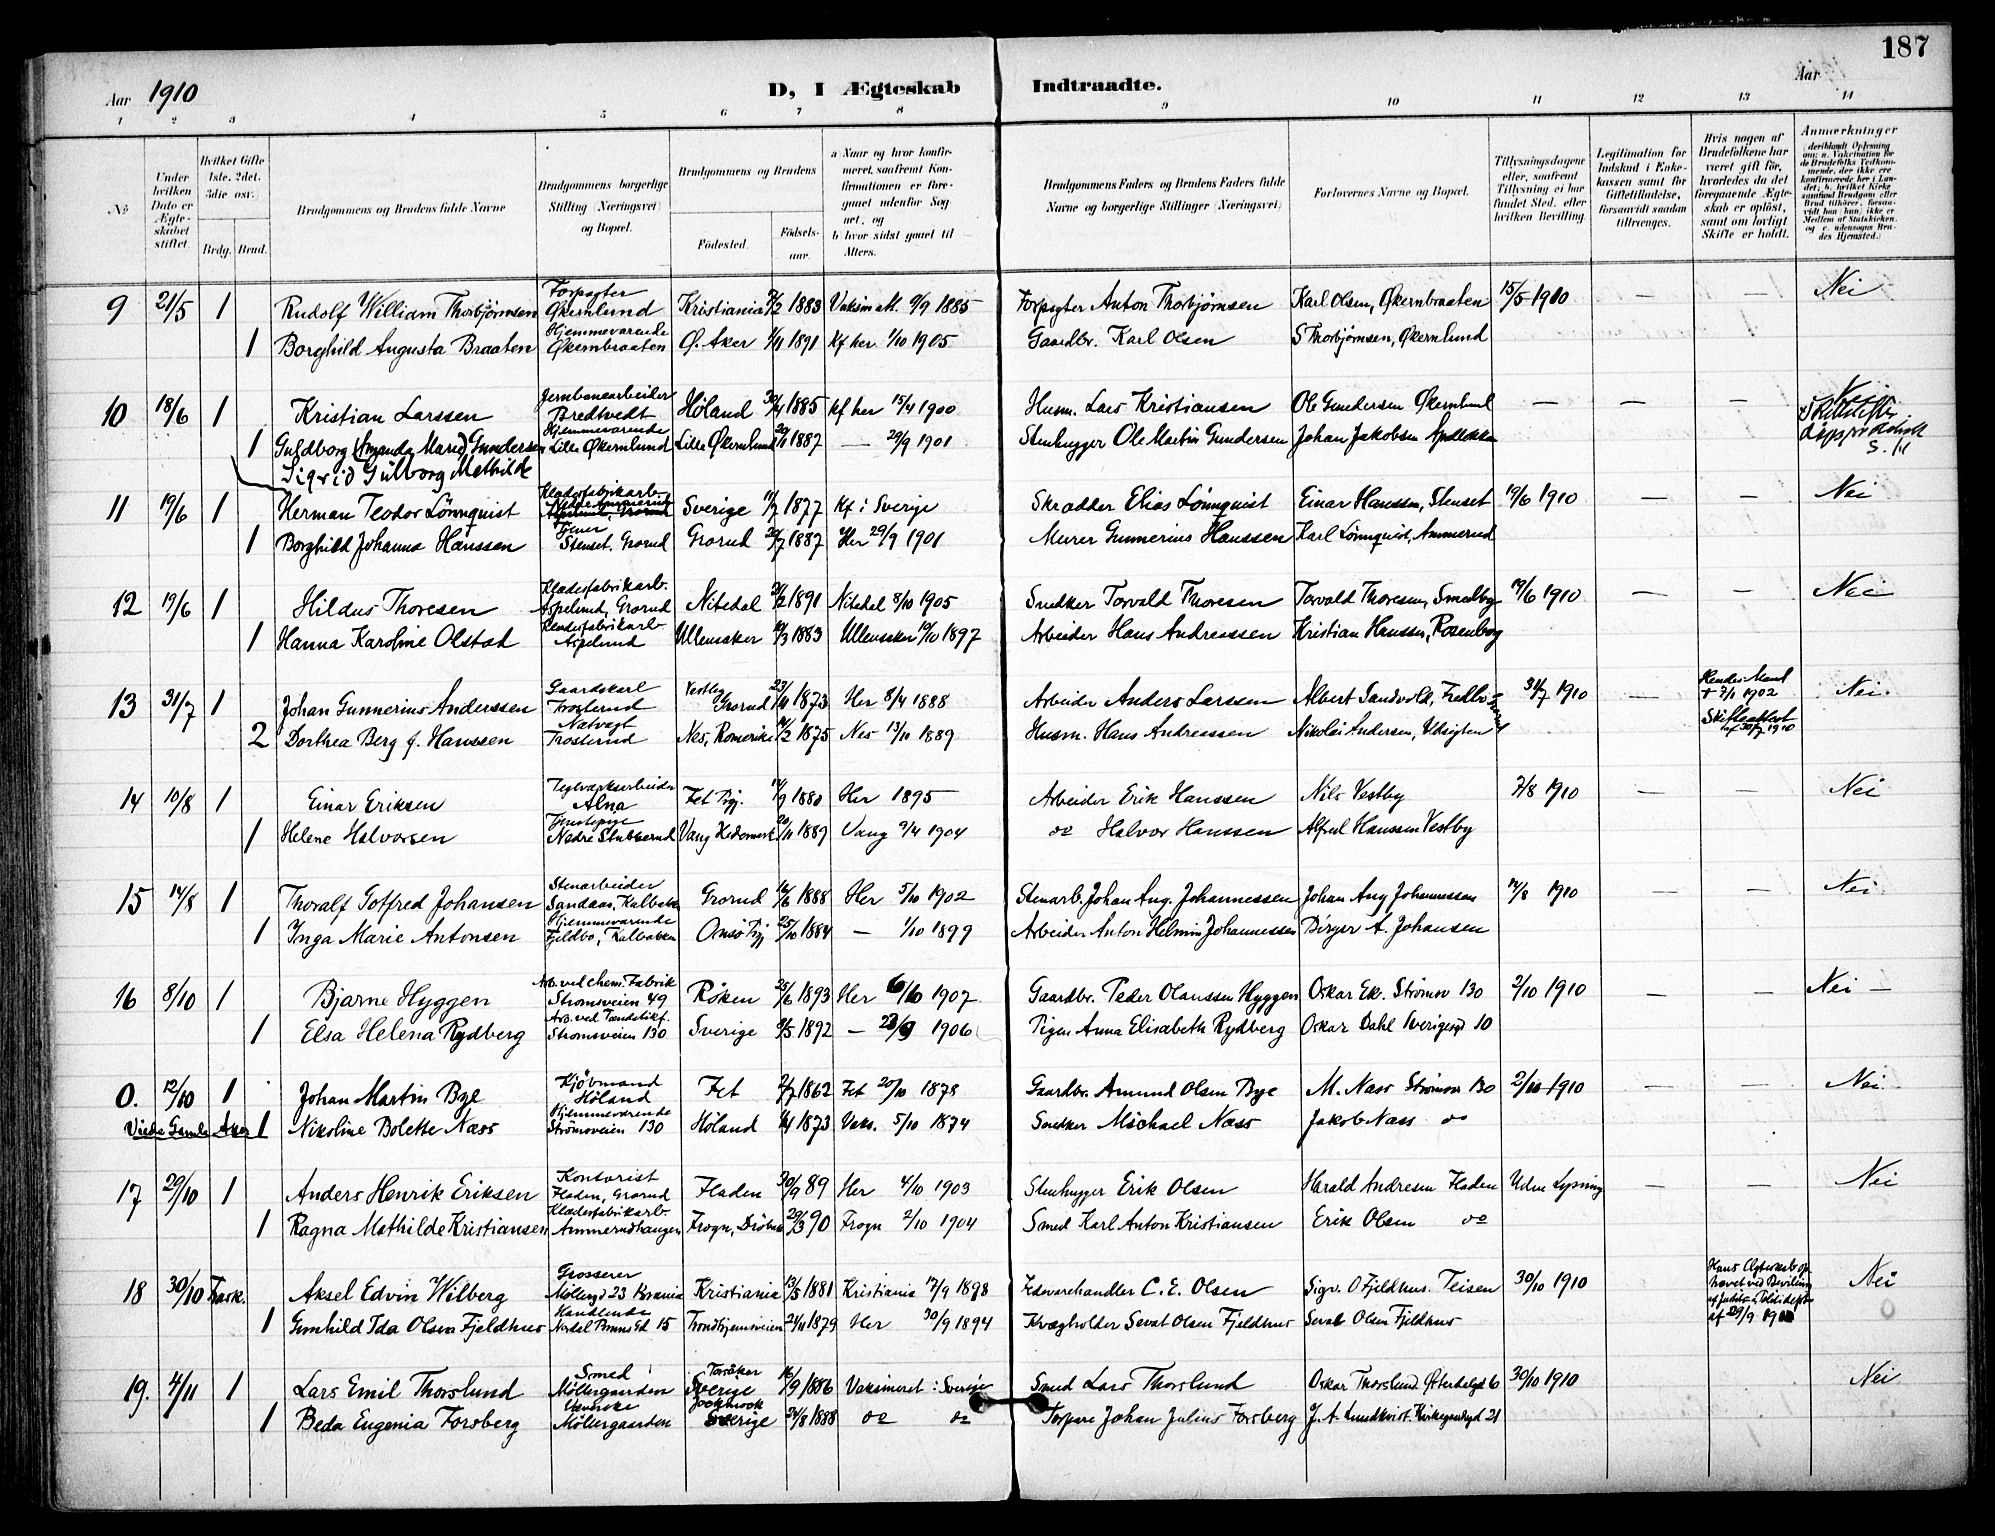 187
Aar 1910 D, I Ægteskab Indtraadte. Aar
1 2 3 4 5 6 7 8 9 10 11 12 13 14
№
Under hvilken Dato er Ægteskabet stiftet.
Hvilket Gifte 1ste, 2det, 3die osv.
Brdg. Brud.
Brudgommens og Brudens fulde Navne
Brudgommens borgerlige Stilling (Næringsvei) og Bopæl.
Brudgommens og Brudens
Fødested. Fødselsaar.
a Naar og hvor konfirmeret, saafremt Konfirmationen er foregaaet udenfor Sognet, og
b hvor sidst gaaet til Alters.
Brudgommens Faders og Brudens Faders fulde Navne og borgerlige Stillinger (Næringsvei)
Forlovernes Navne og Bopæl.
Tillysningsdagene eller, saafremt Tillysning ei har fundet Sted, efter hvilken Bevilling.
Legitimation for Indskud i Enkekassen samt for Giftetilladelse, forsaavidt saadan tiltrænges.
Hvis nogen af Brudefolkene har været gift før, hvorledes da det foregaaende Ægteskab er opløst, samt om lovligt Skifte er holdt.
Anmærkninger
9 21/5 1 Rudolf William Thorbjørnsen Forpagter Økernlund Kristiania 1883 Vaksin att. 9/9 1885 Forpagter Anton Thorbjørnsen Karl Olsen, Økernbraaten 15/5 1910 — — Nei
1 Borghild Augusta Braaten Hjemmeværende Økernbraaten Ø. Aker 1891 Kf her 1/10 1905 Gaardbr. Karl Olsen S Thorbjørnsen, Økernlund
10 18/6 1 Kristian Larssen Jernbanearbeider Bredtvedt Høland 30/4 1885 Kf her 15/4 1900 Husm. Lars Kristiansen Ole Gundersen Økernlund — — — Nei
1 Guldborg (Amanda Marie) Gundersen Hjemmeværende Lille Økernlund Lille Økernlund 1887 — 29/9 1901 Stenhugger Ole Martin Gundersen Johan Jakobsen
Sigrid Gulborg Mathilde
11 19/6 1 Herman Teodor Lönnquist Klædesfabrikarb. Sverige 1877 Kf i Sverige Skrædder Elias Lönnquist Einar Hanssen, Stenset 19/6 1910 — — Nei
1 Borghild Johanna Hanssen Stenset, Grorud Grorud 1887 Her 29/9 1901 Murer Gunnerius Hanssen Karl Lönnquist, Ammerud
12 19/6 1 Hildus Thoresen Klædesfabrikarb. Aspelund, Grorud Nitedal 1891 Nitedal 8/10 1905 Snedker Torvald Thoresen Torvald Thoresen, Smedby 19/6 1910 — — Nei
1 Hanna Karoline Olstad Klædesfabrikarb Aspelund Ullensaker 1883 Ullensaker 10/10 1897 Arbeider Hans Andreassen Kristian Hanssen, Rosenborg
13 31/7 1 Johan Gunnerius Anderssen Gaardskarl Trosterud Vestby Grorud 23/11 1873 Her 8/4 1888 Arbeider Anders Larssen Albert Sandvold, 31/7 1910 — Hendes Mand † 7/1 1902 Nei
2 Dorthea Berg f. Hanssen Natvagt Trosterud Nes, Romerike 1875 Nes 13/10 1889 Husm. Hans Andreassen Nikolai Andersen, Udsigten Skifteattest
14 10/8 1 Einar Eriksen Teglværksarbeider Alna Fet Pgj. 1880 Her 1895 Arbeider Erik Hanssen Nils Vestby 7/8 1910 — — Nei
1 Helene Halvorsen Tjenestepige Nedre Stubberud Vang Hedemark 20/11 1889 Vang 9/4 1904 do Halvor Hanssen Alfred Hanssen Vestby
15 14/8 1 Thoralf Gotfred Johansen Stenarbeider Sandaas, Kalbakken Grorud 1888 Her 5/10 1902 Stenarb. Johan Aug. Johannessen Johan Aug Johannessen 14/8 1910 — — Nei
1 Inga Marie Antonsen Hjemmeværende Fjeldbo, Kalbakken Onsø Pgj 25/10 1884 — 1/10 1899 Arbeider Anton Helmin Johannessen Birger A. Johansen
16 8/10 1 Bjarne Hyggen Arb. ved chem. Fabrik Strømsveien 49 Røken 25/6 1893 Her 1907 Gaardbr. Peder Olaussen Hyggen Oskar Ek. Strømsv 130 2/10 1910 — — Nei —
1 Elsa Helena Rydberg Arb. ved Tændstikf. Strømsveien 130 Sverige 9/5 1892 — 23/9 1906 Pigen Anna Elisabeth Rydberg Oskar Dahl Sverigesgd 10
0. 12/10 1 Johan Martin Bye Kjøbmand Høland Fet 2/7 1862 Fet 20/10 1878 Gaardbr. Amund Olsen Bye M. Næss Strømsv 130 2/10 1910 — — Nei
Viede Gamle Aker 1 Nikoline Bolette Næss Hjemmeværende Strømsveien 130 Høland 1873 Vaks. 5/10 1874 Snedker Michael Næss Jakob Næss do
17 29/10 1 Anders Henrik Eriksen Kontorist Fladen, Grorud Fladen 30/9 89 Her 4/10 1903 Stenhugger Erik Olsen Harald Andresen Fladen Uden Lysning — — Nei
1 Ragna Mathilde Kristiansen Klædesfabrikarb. Ammerudhaugen Frogn, Drøbak 29/3 90 Frogn 2/10 1904 Smed Karl Anton Kristiansen Erik Olsen do
18 30/10 Frask. Aksel Edvin Wilberg Grosserer Møllergd 23 Krania Kristiania 13/5 1881 Kristiania 17/9 1898 Fedevarehandler C. E. Olsen Sigv. O Fjeldhus. Teisen 30/10 1910 Hans Ægteskab ophævet ved Bevilling af Justits- & Politidept af 29/9 1910 Nei
1 Gunhild Ida Olsen Fjeldhus Handlende Nordal Brunsgd 15 Trondhjemsveien 24/11 1879 Her 30/9 1894 Kvægholder Sevat Olsen Fjeldhus Sevat Olsen Fjeldhus
19. 4/11 1 Lars Emil Thorslund Smed Møllergaarden Torsåker Sverige 16/9 1886 Vaksineret i Sverige Smed Lars Thorslund Oskar Thorslund Østerdalsgd 6 30/10 1910 Nei
1 Beda Eugenia Forsberg Væverske Møllergaarden Jockmock Sverige 24/8 1888 do do Torpare Johan Julius Forsberg J. A. Lundkvist. Kirkegaardsgd 21